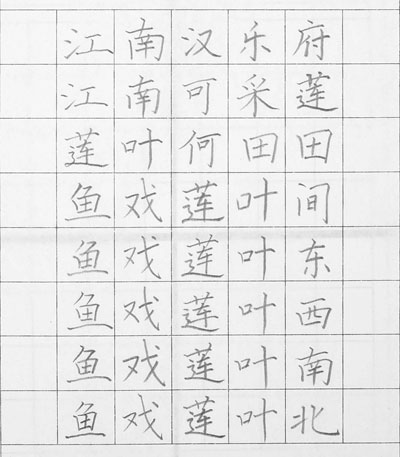 江南汉乐府
江南可采莲
莲叶何田田
鱼戏莲叶间
鱼戏莲叶东
鱼戏莲叶西
鱼戏莲叶南
鱼戏莲叶北